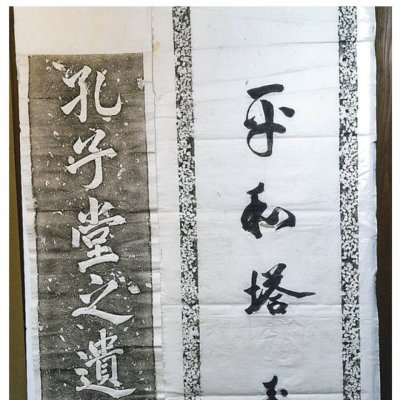 平和塔
孔子堂之遺